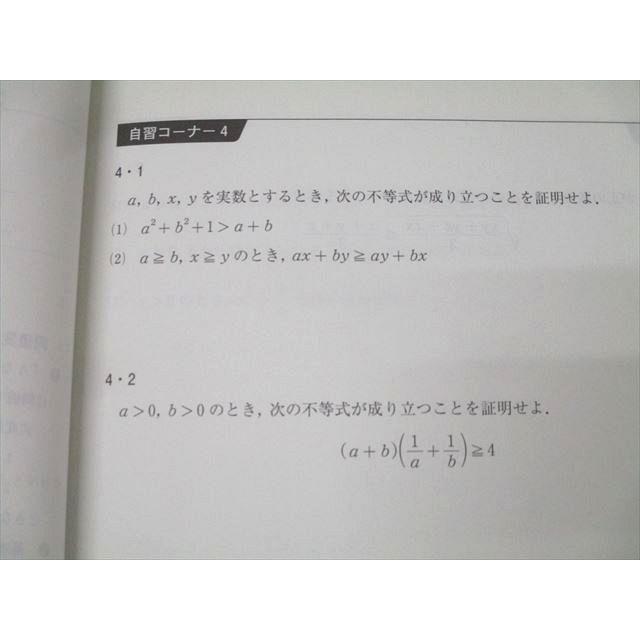 自習コーナー4
4・1
a, b, x, yを実数とするとき, 次の不等式が成り立つことを証明せよ.
(1) a²+b²+1>a+b
(2) a≧b, x≧yのとき, ax+by≧ay+bx
4・2
a>0, b>0のとき, 次の不等式が成り立つことを証明せよ.
(a+b)(1/a+1/b)≧4